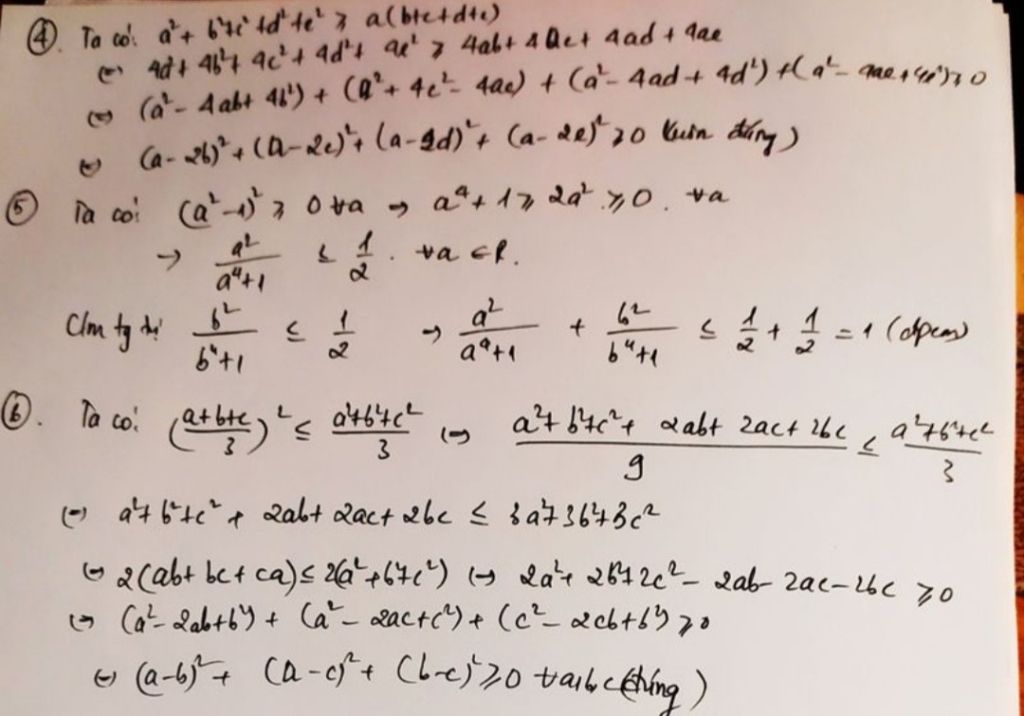 ④. Ta có: a² + b² + c² + d² + e² ≥ a(b+c+d+e)
(=) 4a² + 4b² + 4c² + 4d² + 4e² ≥ 4ab + 4ac + 4ad + 4ae
(=) (a² - 4ab + 4b²) + (a² + 4c² - 4ac) + (a² - 4ad + 4d²) + (a² - 4ae + 4e²) ≥ 0
(=) (a - 2b)² + (a - 2c)² + (a - 2d)² + (a - 2e)² ≥ 0 (luôn đúng)
⑤ Ta có: (a² - 1)² ≥ 0 ∀a → a⁴ + 1 ≥ 2a² ≥ 0. ∀a
→ a²/(a⁴+1) ≤ 1/2. ∀a ∈ R.
Cm tg tự b²/(b⁴+1) ≤ 1/2 → a²/(a⁴+1) + b²/(b⁴+1) ≤ 1/2 + 1/2 = 1 (đpcm)
⑥. Ta có: ((a+b+c)/3)² ≤ (a²+b²+c²)/3 (=) (a²+b²+c² + 2ab + 2ac + 2bc)/9 ≤ (a²+b²+c²)/3
(=) a² + b² + c² + 2ab + 2ac + 2bc ≤ 3a² + 3b² + 3c²
(=) 2(ab + bc + ca) ≤ 2(a² + b² + c²) (=) 2a² + 2b² + 2c² - 2ab - 2ac - 2bc ≥ 0
(=) (a² - 2ab + b²) + (a² - 2ac + c²) + (c² - 2cb + b²) ≥ 0
(=) (a-b)² + (a-c)² + (b-c)² ≥ 0 ∀a,b,c (đúng)